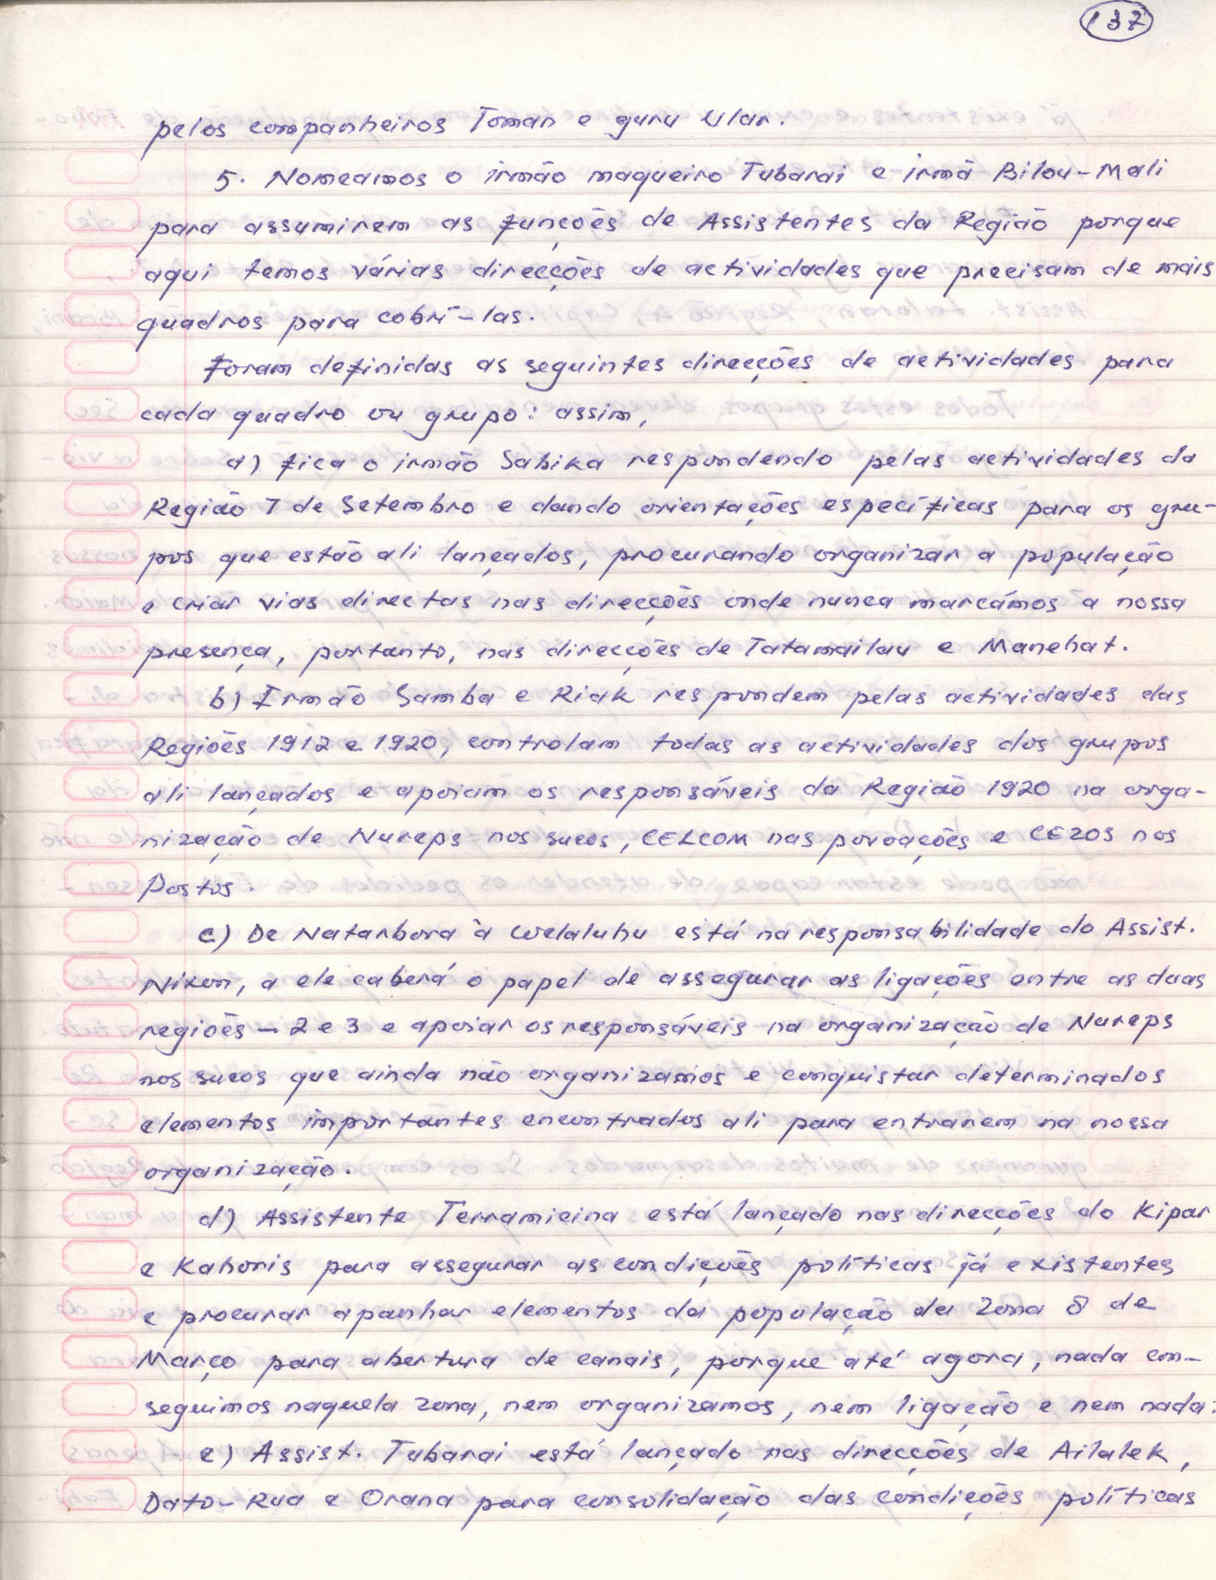 137
pelos companheiros Toman e guru Ular.
5. Nomeamos o irmão maqueiro Tubarai e irmã Bilou-Mali
para assumirem as funções de Assistentes da Região porque
aqui temos várias direcções de actividades que precisam de mais
quadros para cobrí-las.
Foram definidas as seguintes direcções de actividades para
cada quadro ou grupo: assim,
a) fica o irmão Sabika respondendo pelas actividades da
Região 7 de Setembro e dando orientações específicas para os gru-
pos que estão ali lançados, procurando organizar a população
e criar vias directas nas direcções onde nunca marcámos a nossa
presença, portanto, nas direcções de Tatamailau e Manehat.
b) Irmão Samba e Riak respondem pelas actividades das
Regiões 1912 e 1920, controlam todas as actividades dos grupos
ali lançados e apoiam os responsáveis da Região 1920 na orga-
nização de Nureps nos sucos, CELCOM nas povoações e CEZOS nos
Postos.
c) De Natarbora à Welaluhu está na responsabilidade do Assist.
Nixon, a ele caberá o papel de assegurar as ligações entre as duas
regiões - 2 e 3 e apoiar os responsáveis na organização de Nureps
nos sucos que ainda não organizamos e conquistar determinados
elementos importantes encontrados ali para entrarem na nossa
organização.
d) Assistente Terramicina está lançado nas direcções do Kipar
e Kahoris para assegurar as condições políticas já existentes
e procurar apanhar elementos da população da Zona 8 de
Março para abertura de canais, porque até agora, nada con-
seguimos naquela zona, nem organizamos, nem ligação e nem nada.
e) Assist. Tubarai está lançado nas direcções de Ailalek,
Dato-Rua e Orana para consolidação das condições políticas